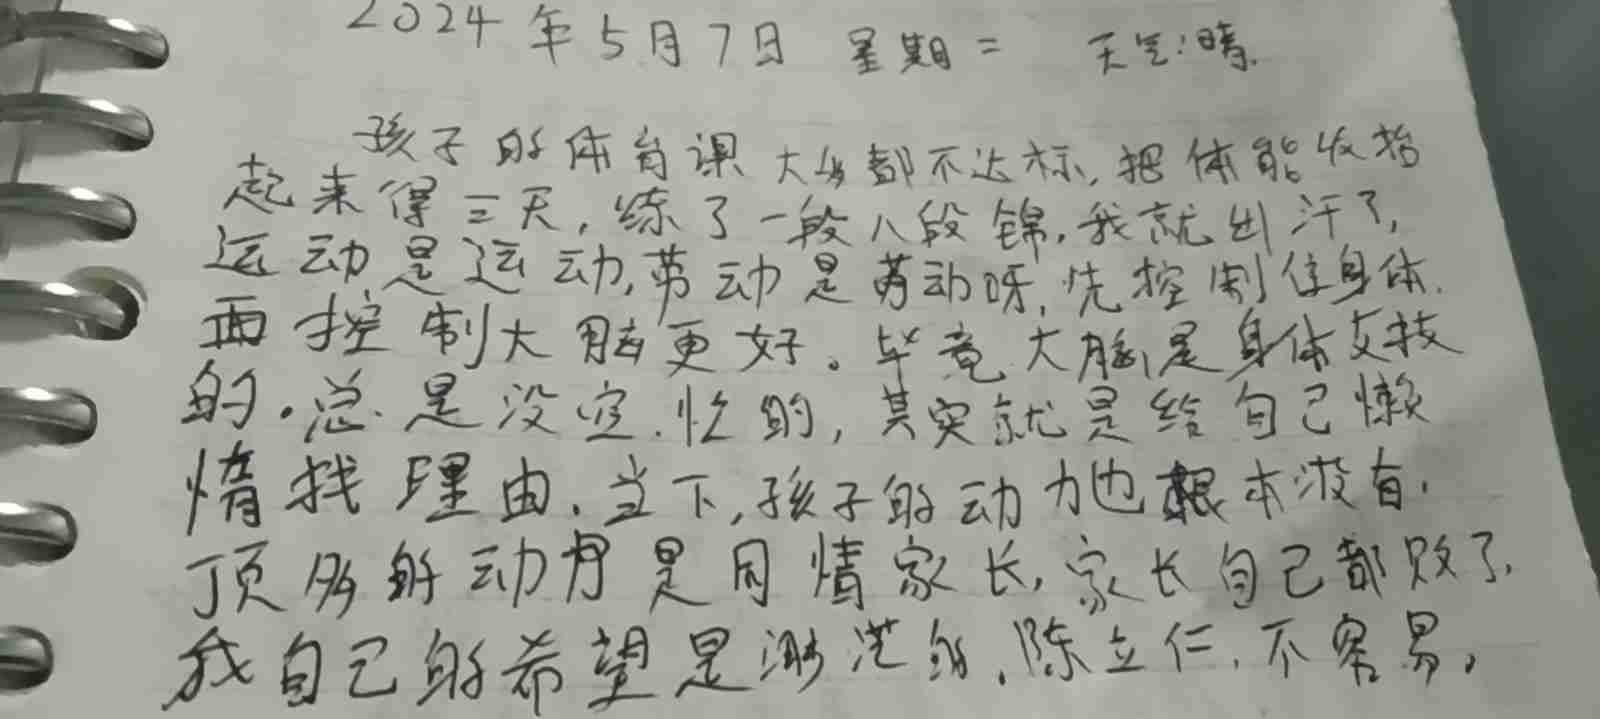 2024年5月7日 星期二 天气:晴.
孩子的体育课大多都不达标,把体能收拾
起来得三天,练了一段八段锦,我就出汗了,
运动是运动,劳动是劳动呀,先控制住身体.
再控制大脑更好。毕竟大脑是身体支技
的.总是没空.忙的,其实就是给自己懒
惰找理由.当下,孩子的动力他根本没有.
顶多的动力是同情家长,家长自己都败了.
我自己的希望是渺茫的.陈立仁.不容易.